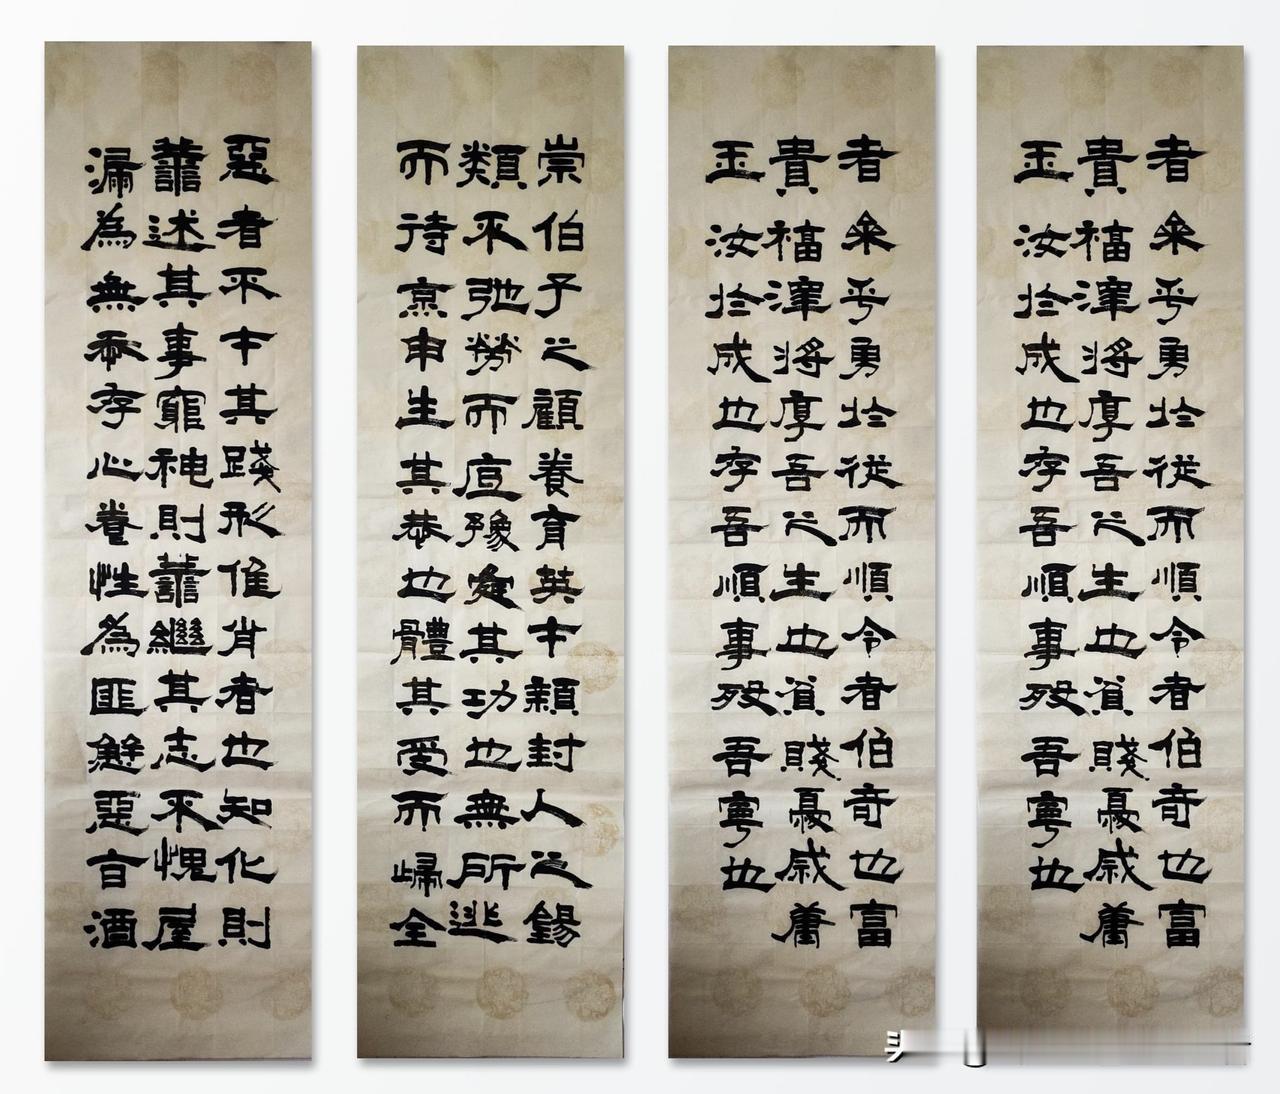 惡者不才其踐形惟肖者也知化則
譱述其事窮神則譱繼其志不愧屋
漏為無忝存心養性為匪懈惡旨酒
崇伯子之顧養育英才穎封人之錫
類不弛勞而底豫舜其功也無所逃
而待烹申生其恭也體其受而歸全
者參乎勇於從而順令者伯奇也富
貴福澤將厚吾之生也貧賤憂戚庸
玉汝於成也存吾順事歿吾寧也
者參乎勇於從而順令者伯奇也富
貴福澤將厚吾之生也貧賤憂戚庸
玉汝於成也存吾順事歿吾寧也